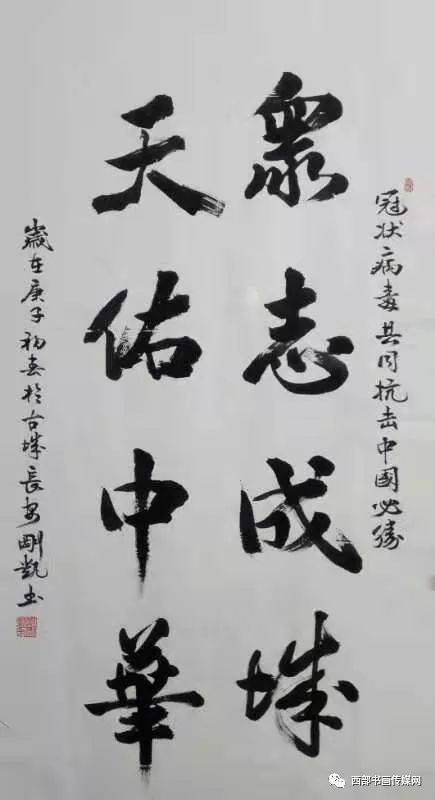 冠状病毒共同抗击中國必勝
眾志成城
天佑中華
歲在庚子初春於古城長安剛凱书
西部书画传媒网